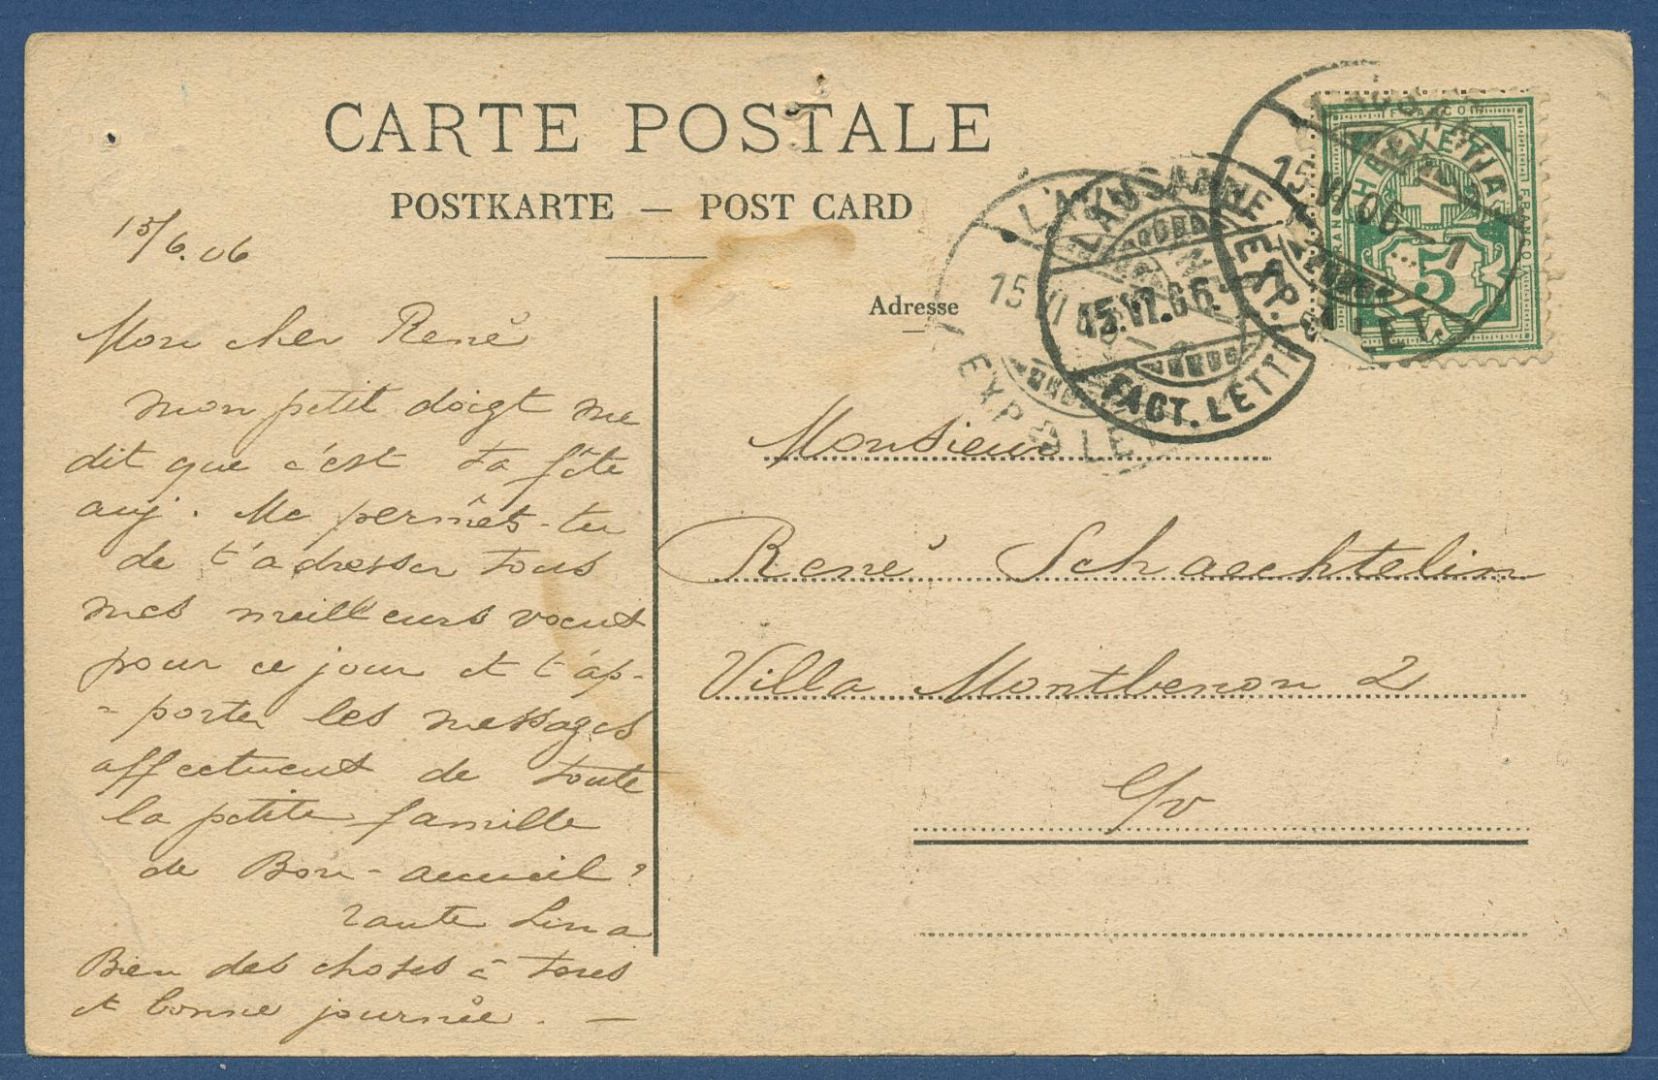 CARTE POSTALE
POSTKARTE — POST CARD
Adresse
15/6.06
Mon cher René
mon petit doigt me
dit que c'est ta fête
auj. Me permêts-tu
de t'adresser tous
mes meilleurs voeux
pour ce jour et t'ap-
-porter les messages
affectueux de toute
la petite famille
de Bon-accueil?
Tante Lina
Bien des choses à tous
et bonne journée. —
Monsieur
René Schaechtelin
Villa Montbenon 2
E/v
LAUSANNE
15.VI.06.-1
FACT. LETTR.
LAUSANNE
15 VI
EXP. LET.
LAUSANNE
15.VI.06-1
EXP. LET.
FRANCO
HELVETIA
FRANCO
FRANCO
5